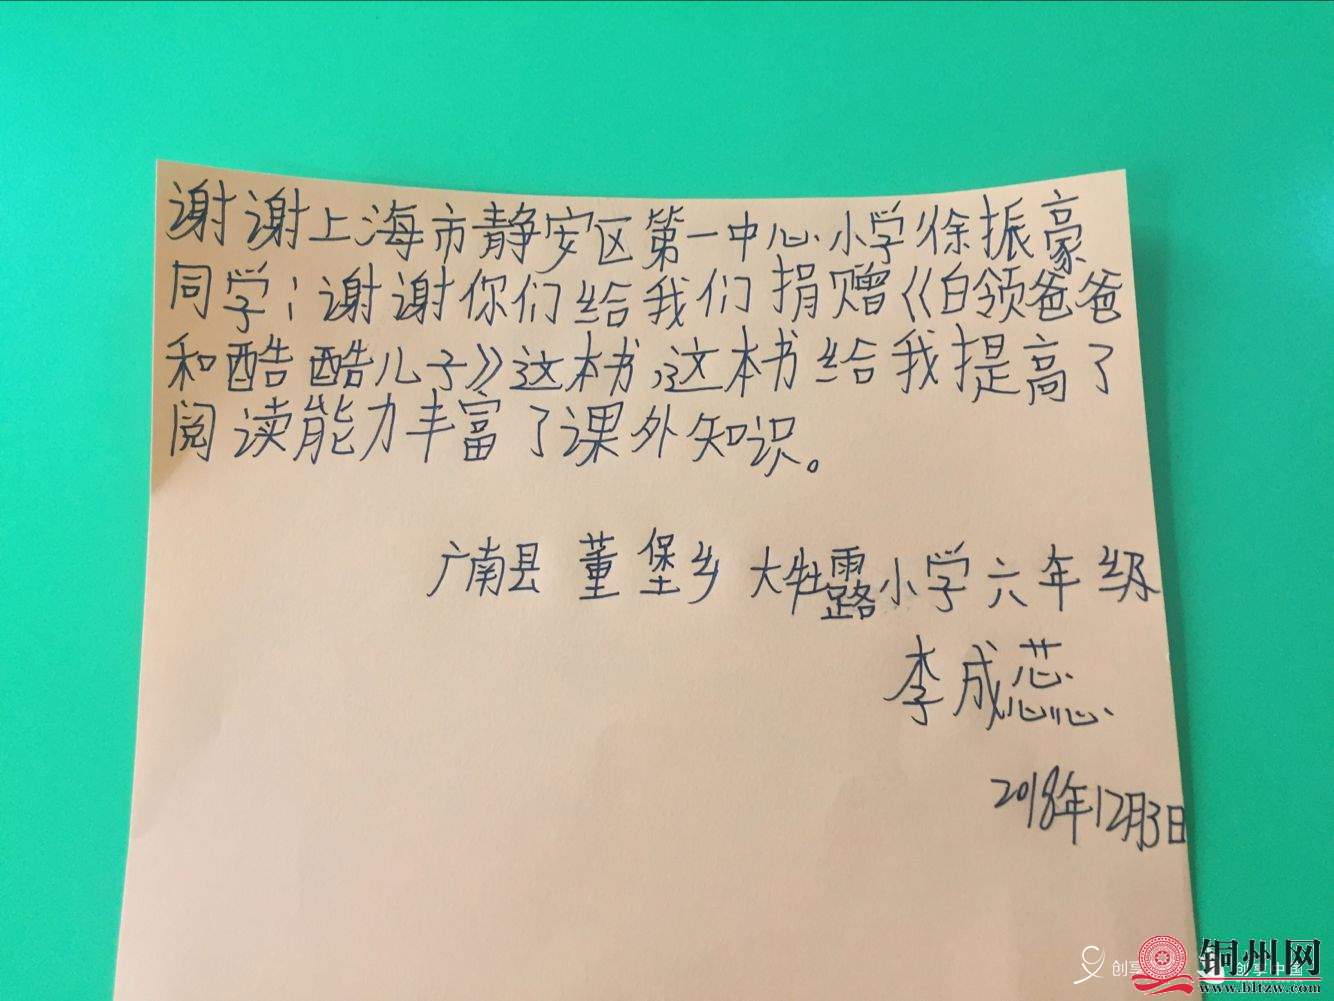 谢谢上海市静安区第一中心小学徐振豪
同学；谢谢你们给我们捐赠《白领爸爸
和酷酷儿子》这本书，这本书给我提高了
阅读能力丰富了课外知识。
广南县董堡乡大牡露小学六年级
李成蕊
2018年12月3日
铜州网
www.bltzw.com